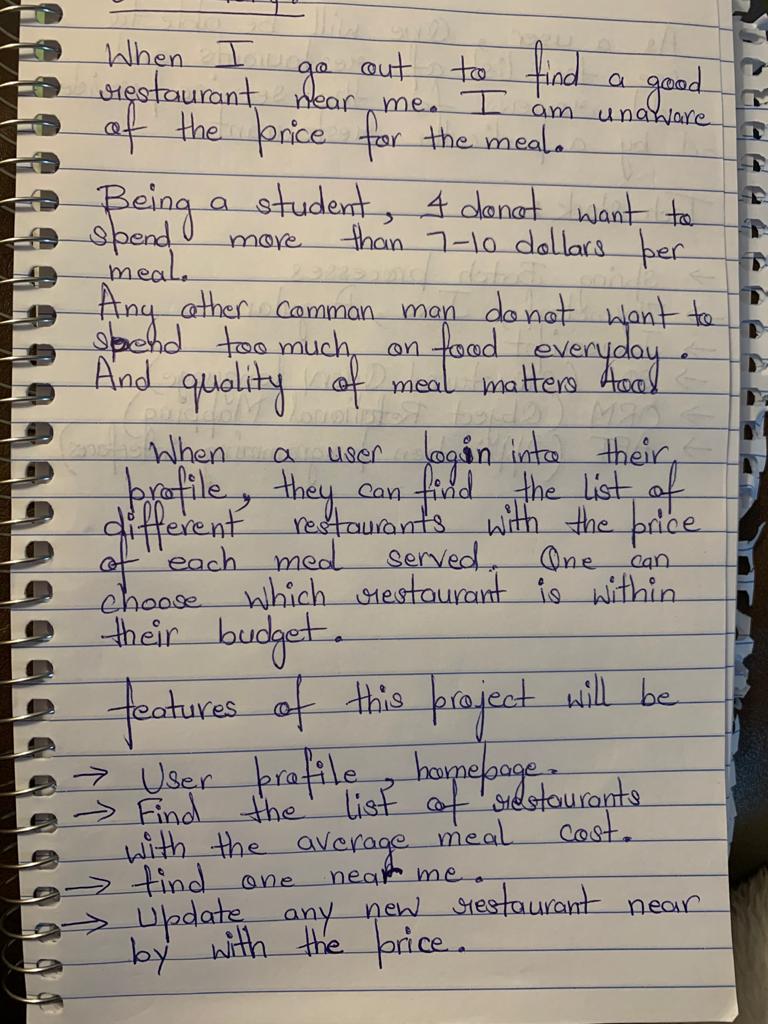 When I go out to find a good
restaurant near me. I am unaware
of the price for the meal.
Being a student, I donot want to
spend more than 7-10 dollars per
meal.
Any other comman man do not want to
spend too much on food everyday.
And quality of meal matters too!
When a user login into their
profile, they can find the list of
different restaurants with the price
of each meal served. One can
choose which restaurant is within
their budget.
features of this project will be
→ User profile, homepage.
→ Find the list of restaurants
with the average meal cost.
→ find one near me.
→ Update any new restaurant near
by with the price.